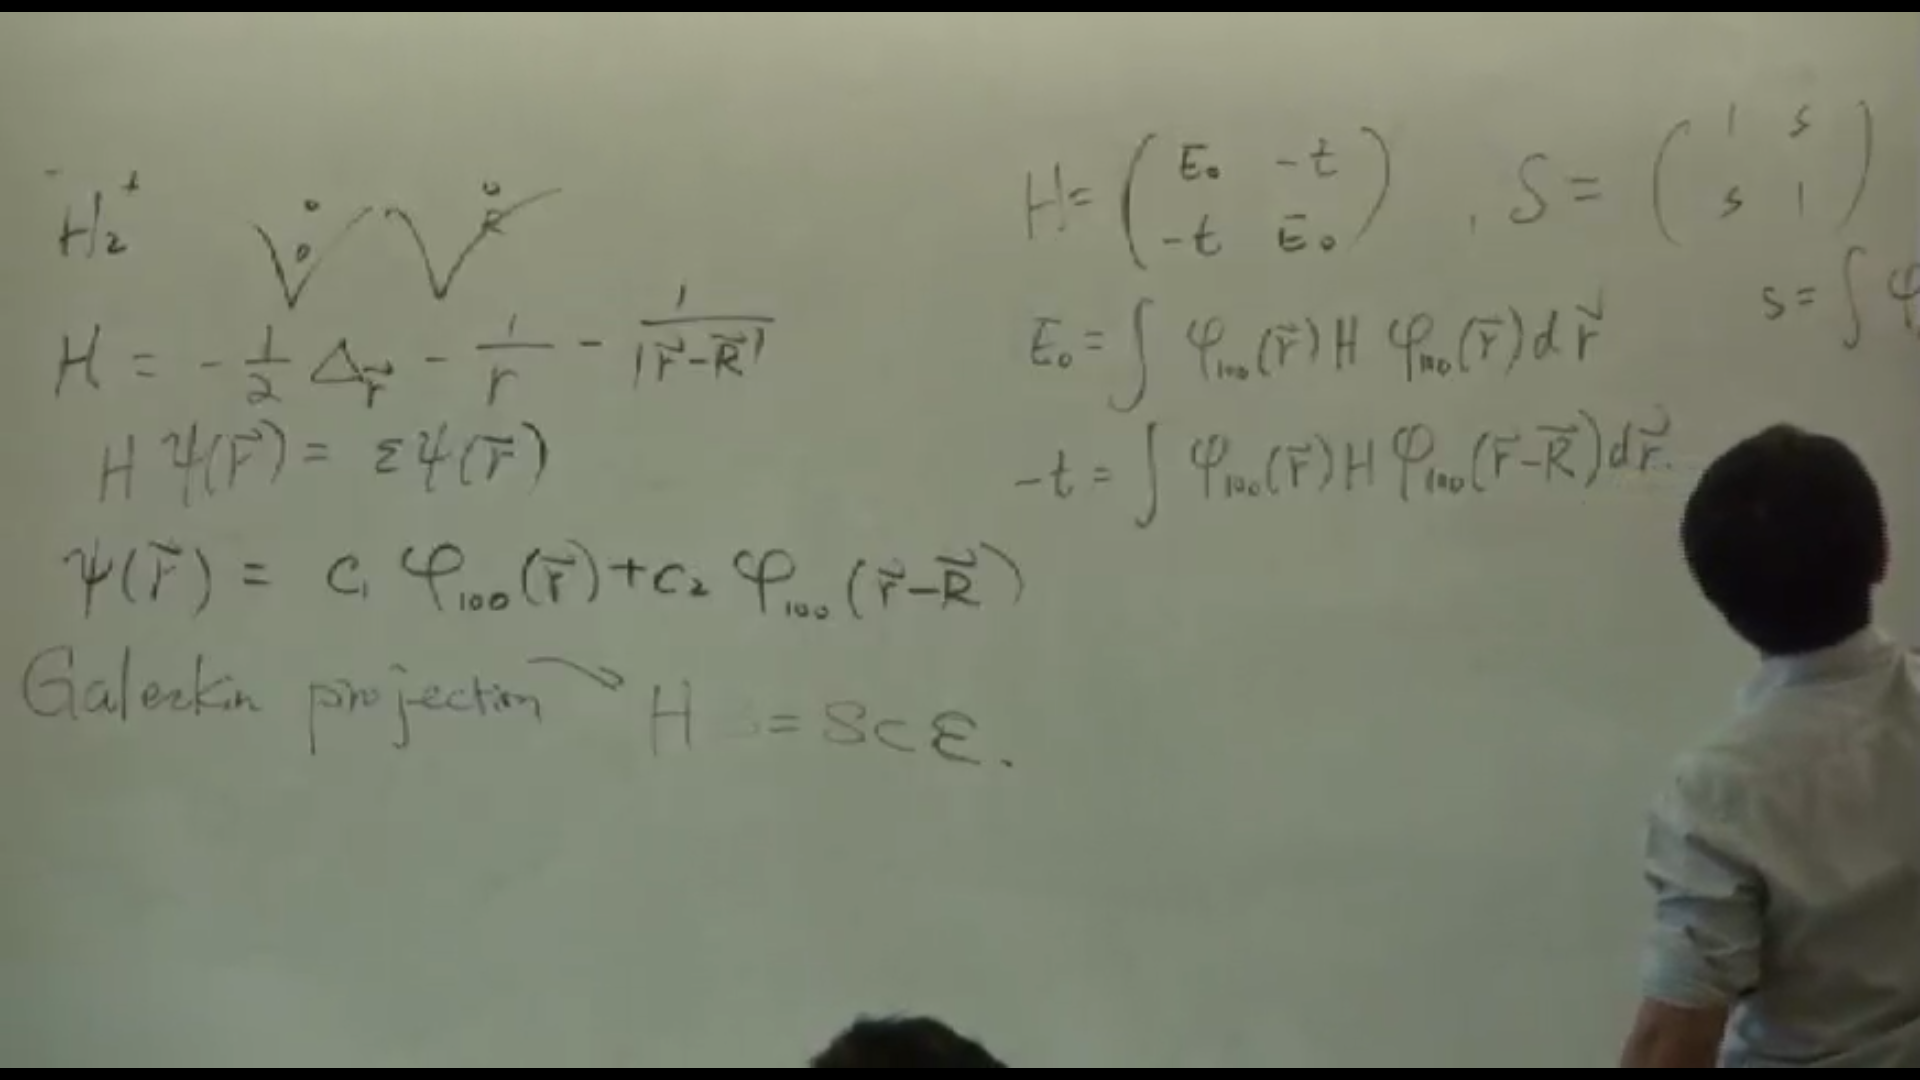 H₂⁺
0 R
H = -1/2 Δ_r⃗ - 1/r - 1/|r⃗-R⃗|
H ψ(r⃗) = εψ(r⃗)
ψ(r⃗) = C₁ φ₁₀₀(r⃗) + C₂ φ₁₀₀(r⃗-R⃗)
Galerkin projection → H = SCε.
H = ( E₀ -t
-t E₀ ), S = ( 1 s
s 1 )
E₀ = ∫ φ₁₀₀(r⃗) H φ₁₀₀(r⃗) dr⃗
s = ∫ φ
-t = ∫ φ₁₀₀(r⃗) H φ₁₀₀(r⃗-R⃗) dr⃗.